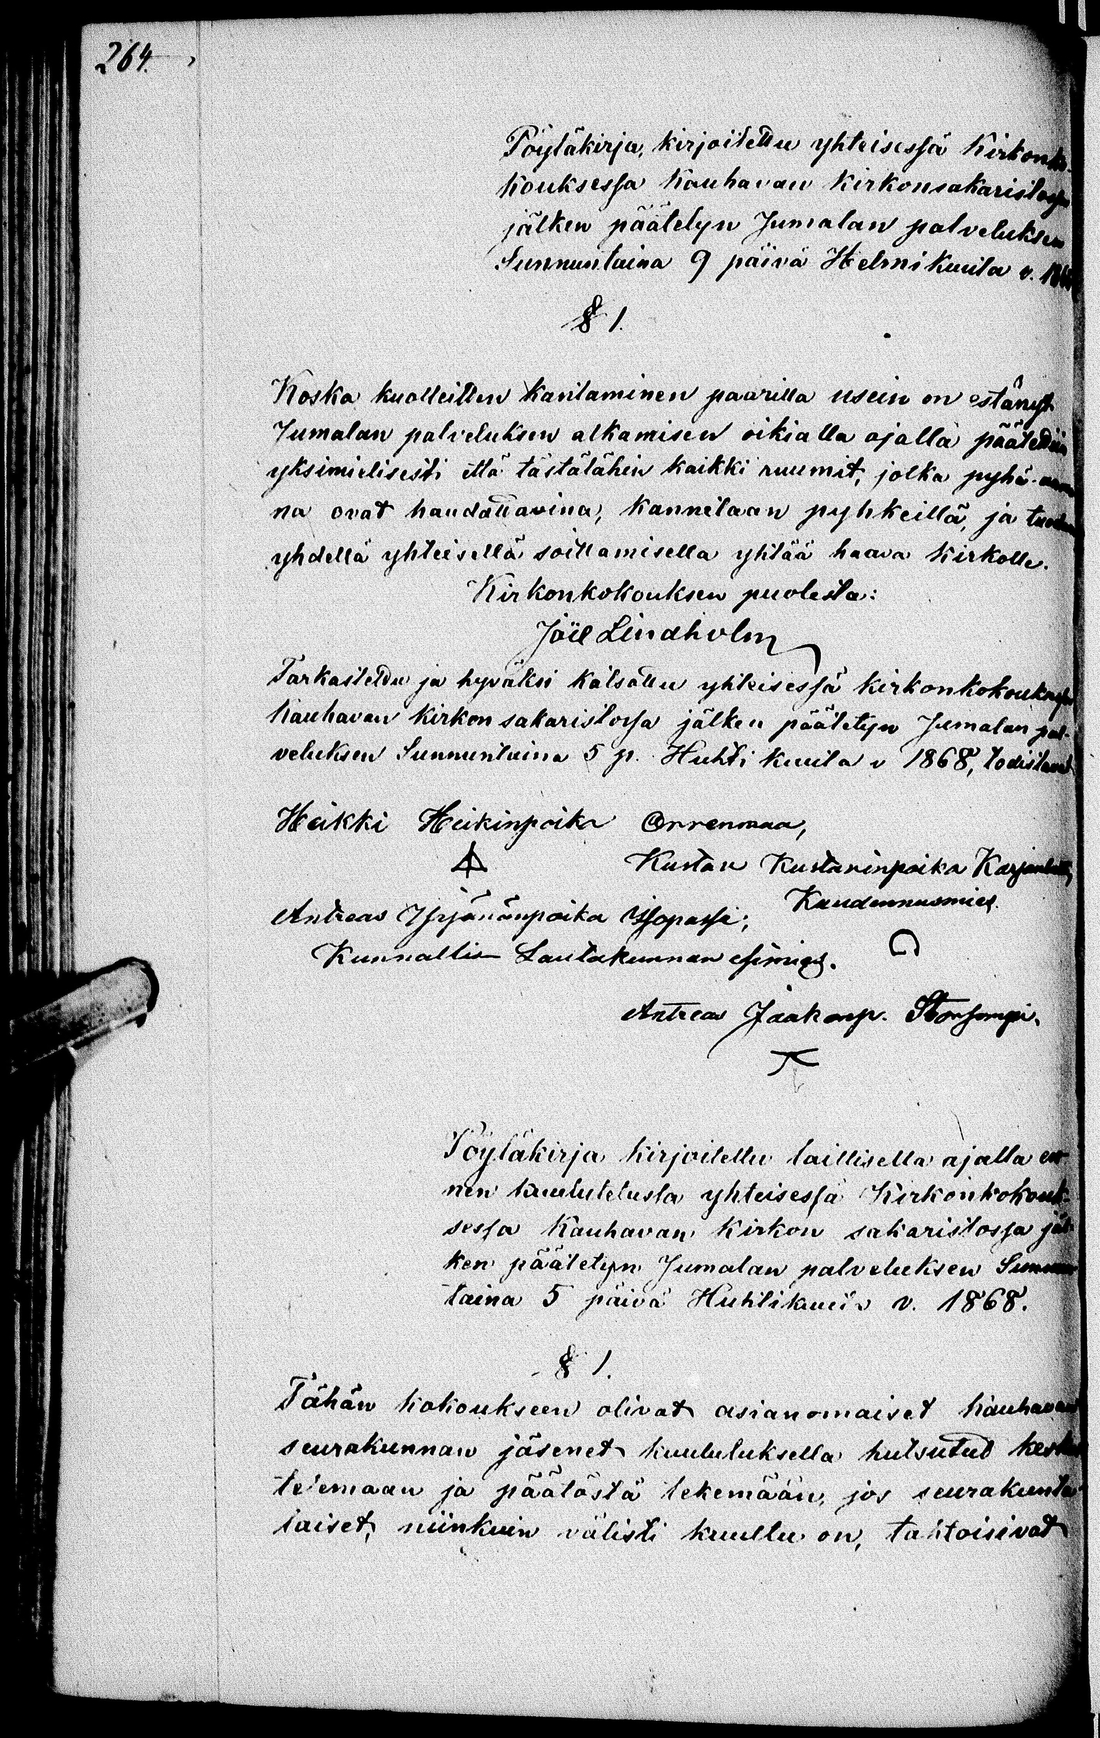 264.
Pöytäkirja, kirjoitettu yhteisessä Kirkonko-
kouksessa Kauhavan Kirkonsakaristossa
jälken päätetyn Jumalan palveluksen
Sunnuntaina 9 päivä Helmikuuta v.
§ 1.
Koska kuolleitten kantaminen paarilla usein on estänyt
Jumalan palveluksen alkamisen oikialla ajalla päätettiin
yksimielisesti että tästälähin kaikki ruumit, jotka pyhä-
na ovat haudattavina, kannetaan pyhkeillä, ja tuodaan
yhdellä yhteisellä soittamisella yhtää haava kirkolle.
Kirkonkokouksen puolesta:
Joël Lindholm
Tarkastettu ja hyväksi katsottu yhteisessä kirkonkokouksessa
Kauhavan Kirkon sakaristossa jälken päätetyn Jumalan pal-
veluksen Sunnuntaina 5 p. Huhti kuuta v 1868, todistavat
Heikki Heikinpoika Orrenmaa,
Kustaa Kustaanpoika Karjanlahti,
Kuudennusmies.
Antreas Yrjänänpoika Yssopassi;
Kunnallis Lautakunnan esimies.
Antreas Jaakonp. Storsompi.
Pöytäkirja kirjoitettu laillisella ajalla en-
nen kuulutetusta yhteisessä Kirkonkokouk-
sessa Kauhavan Kirkon sakaristossa jäl-
ken päätetyn Jumalan palveluksen Sunnun-
taina 5 päivä Huhtikuuta v. 1868.
§ 1.
Tähän kokoukseen olivat asianomaiset Kauhavan
seurakunnan jäsenet kuulutuksella kutsutut keskus
telemaan ja päätöstä tekemään, jos seurakunta
laiset, niinkuin välisti kuultu on, tahtoisivat